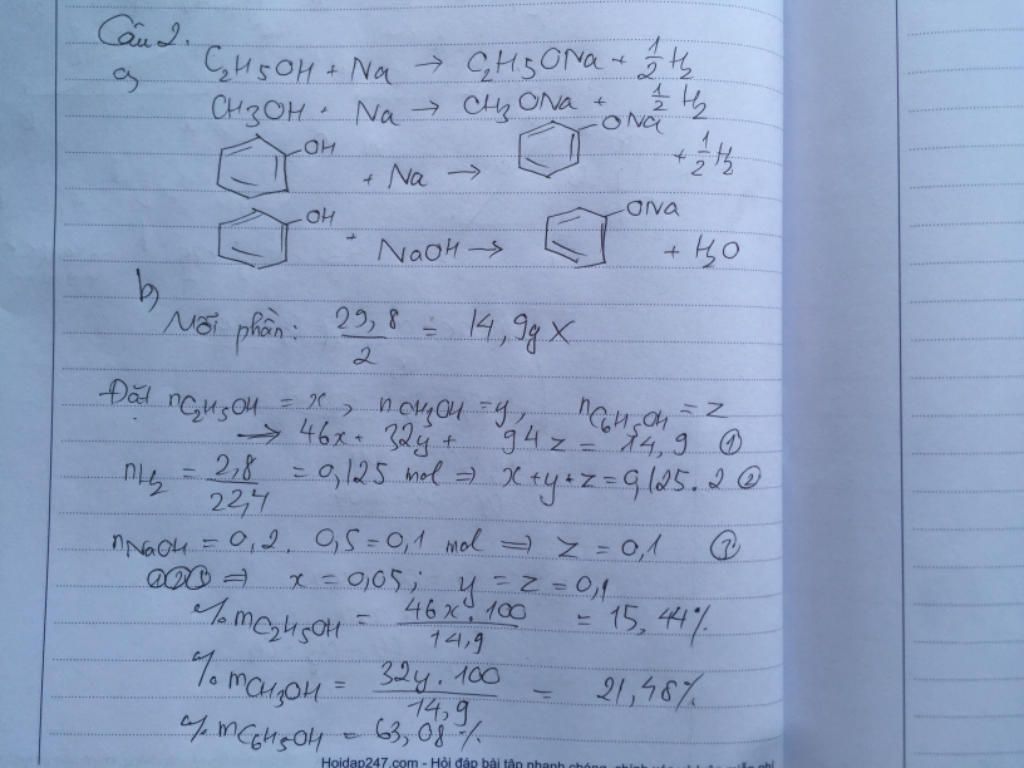 Câu 2.
a) C2H5OH + Na → C2H5ONa + 1/2 H2
CH3OH + Na → CH3ONa + 1/2 H2
OH + Na → ONa + 1/2 H2
OH + NaOH → ONa + H2O
b)
Mỗi phần: 29,8/2 = 14,9g X
Đặt nC2H5OH = x, nCH3OH = y, nC6H5OH = z
→ 46x + 32y + 94z = 14,9 ①
nH2 = 2,8/22,4 = 0,125 mol ⇒ x+y+z = 0,125.2 ②
nNaOH = 0,2. 0,5 = 0,1 mol ⇒ z = 0,1 ③
①②③ ⇒ x = 0,05; y = z = 0,1
%mC2H5OH = 46x.100/14,9 = 15,44%
%mCH3OH = 32y.100/14,9 = 21,48%
%mC6H5OH = 63,08%
Hoidap247.com - Hỏi đáp bài tập nhanh chóng, chính xác